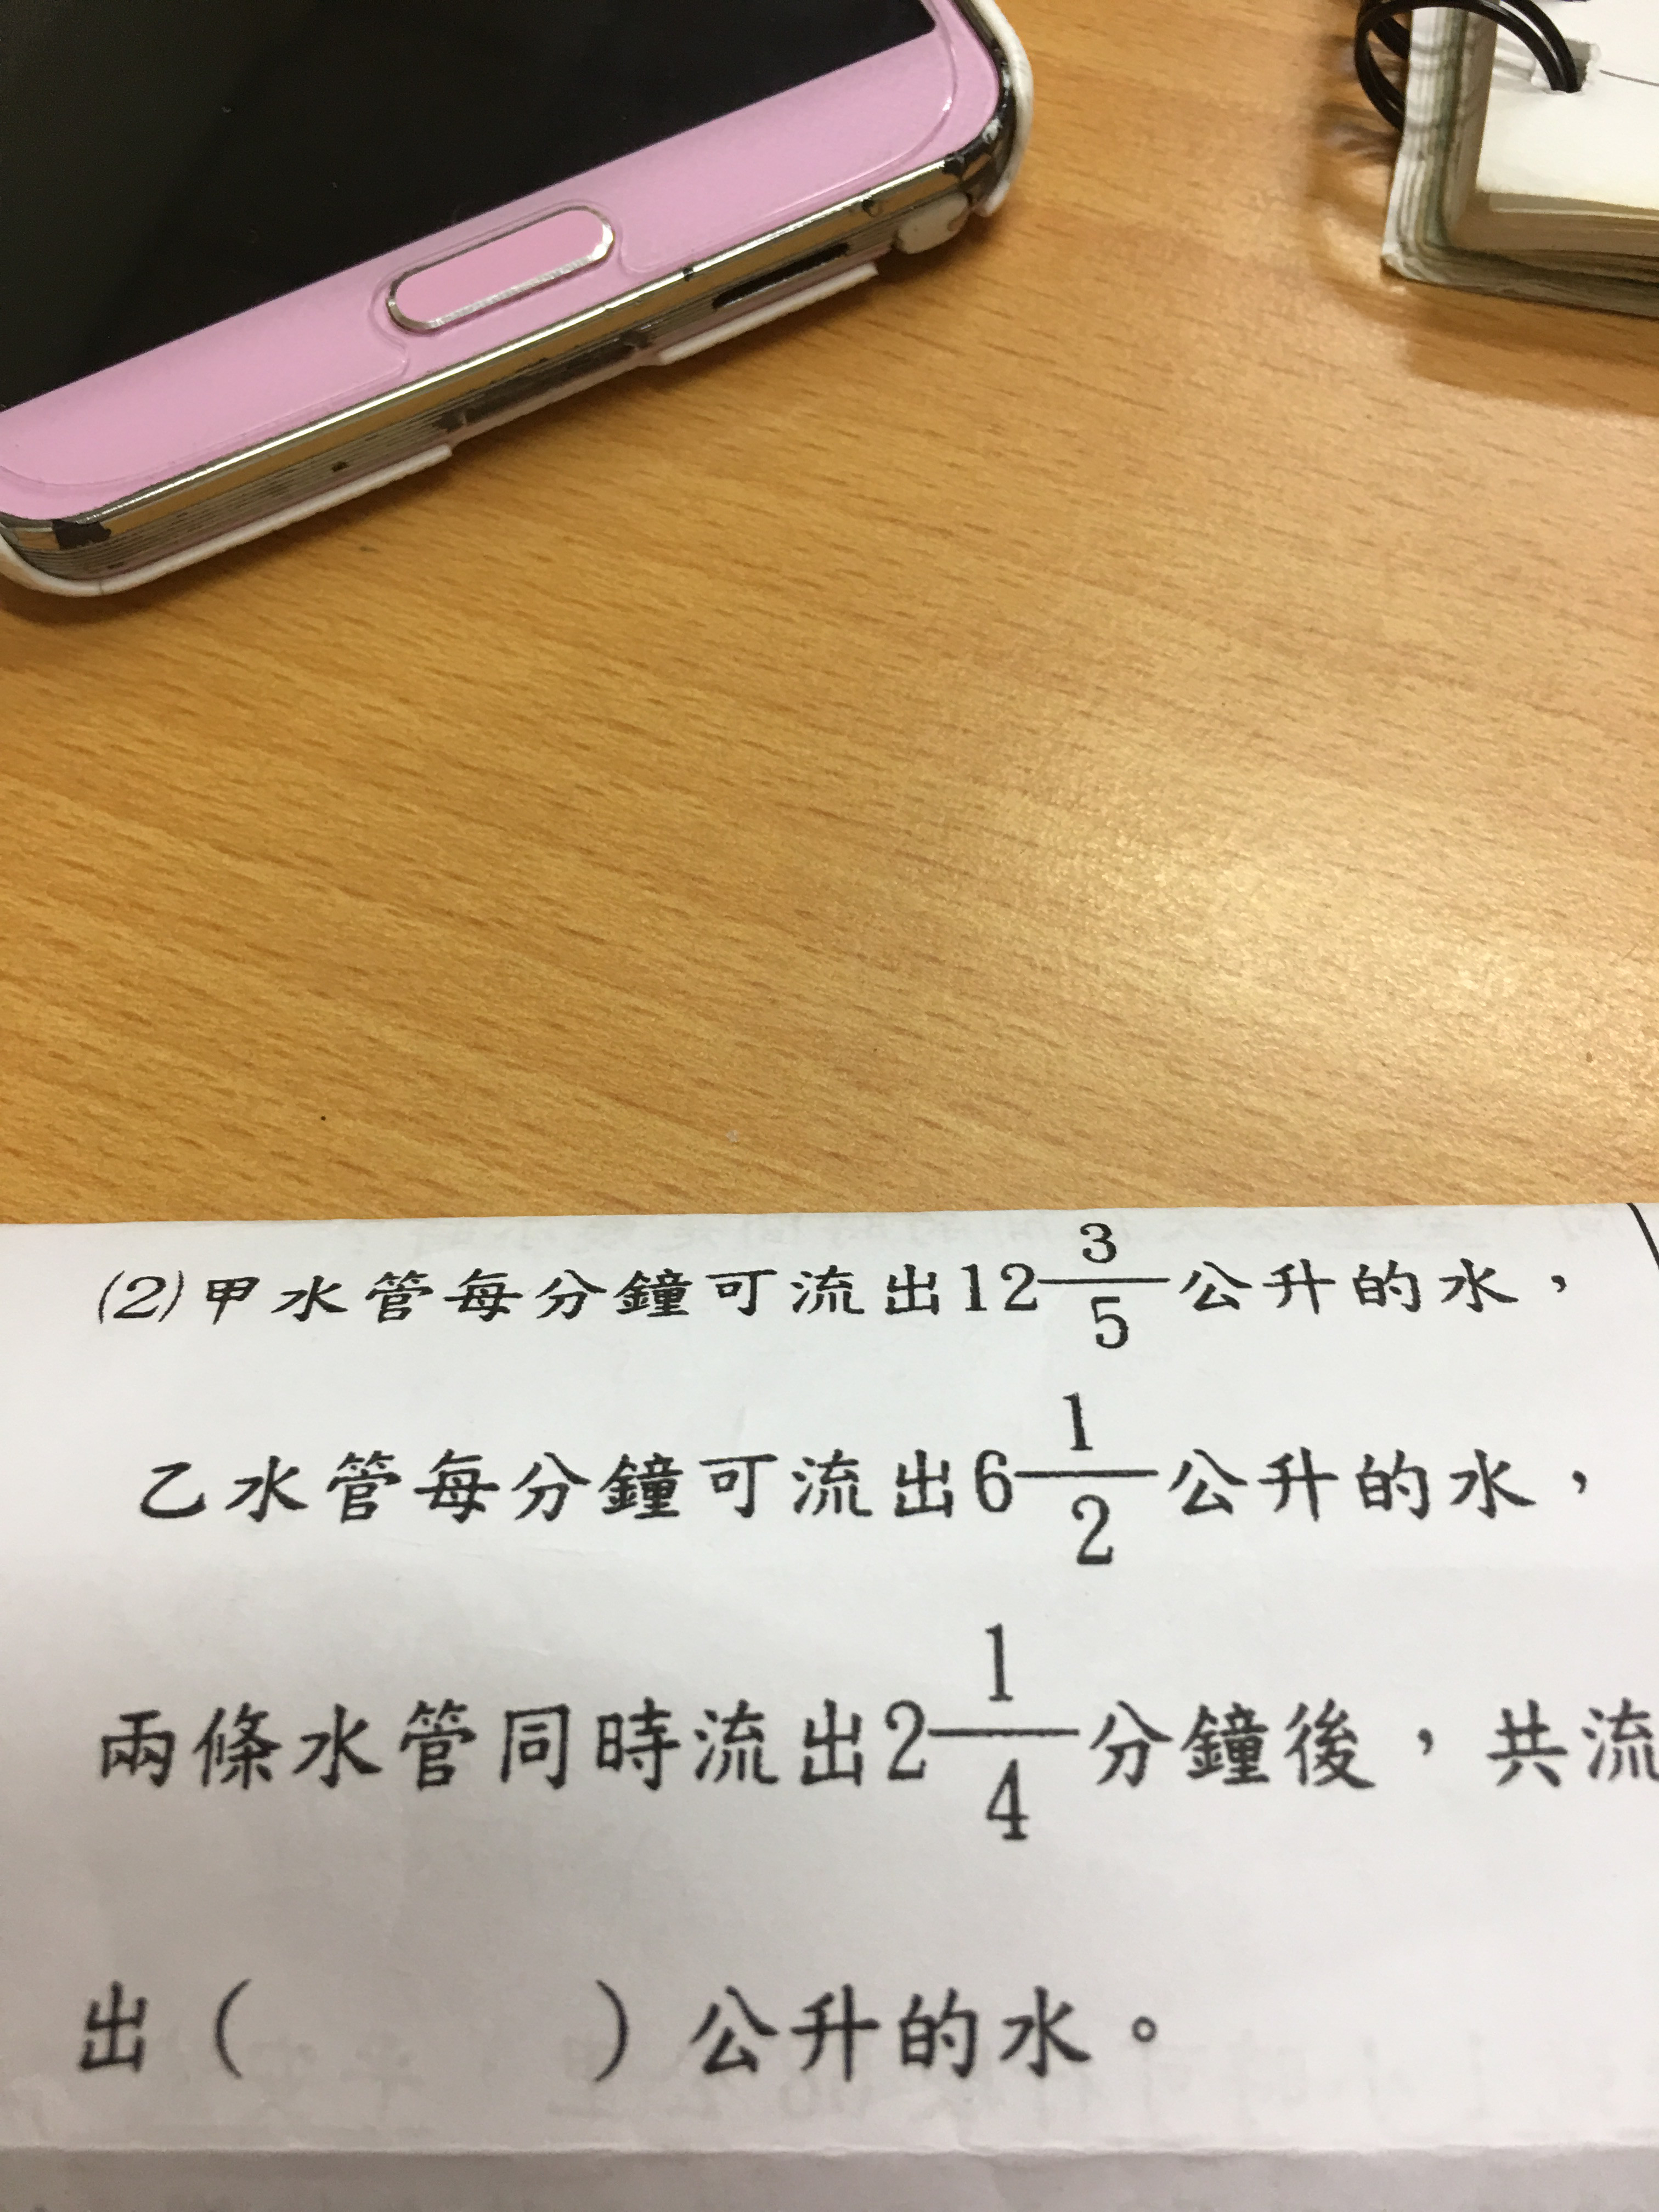 (2)甲水管每分鐘可流出12 3/5公升的水，
乙水管每分鐘可流出6 1/2公升的水，
兩條水管同時流出2 1/4分鐘後，共流
出（　　　）公升的水。